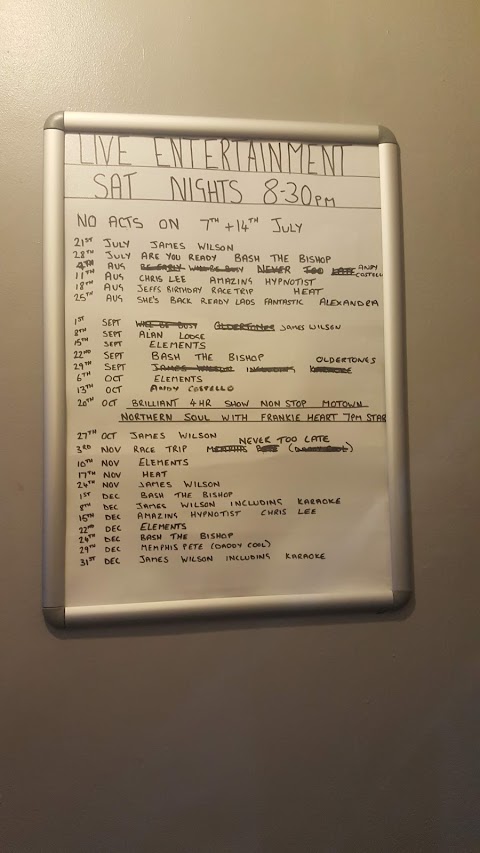 LIVE ENTERTAINMENT
SAT NIGHTS 8-30PM
NO ACTS ON 7TH + 14TH JULY
21ST JULY JAMES WILSON
28TH JULY ARE YOU READY BASH THE BISHOP
4TH AUG BE EARLY WILL BE BUSY NEVER TOO LATE ANDY COSTELLO
11TH AUG CHRIS LEE AMAZING HYPNOTIST
18TH AUG JEFFS BIRTHDAY RACE TRIP HEAT
25TH AUG SHE'S BACK READY LADS FANTASTIC ALEXANDRA
1ST SEPT WILL BE BUSY OLDERTONES JAMES WILSON
8TH SEPT ALAN LODGE
15TH SEPT ELEMENTS
22ND SEPT BASH THE BISHOP
29TH SEPT JAMES WILSON INCLUDING KARAOKE OLDERTONES
6TH OCT ELEMENTS
13TH OCT ANDY COSTELLO
20TH OCT BRILLIANT 4HR SHOW NON STOP MOTOWN
NORTHERN SOUL WITH FRANKIE HEART 7PM STAR
27TH OCT JAMES WILSON
3RD NOV RACE TRIP MEMPHIS PETE (DADDY COOL) NEVER TOO LATE
10TH NOV ELEMENTS
17TH NOV HEAT
24TH NOV JAMES WILSON
1ST DEC BASH THE BISHOP
8TH DEC JAMES WILSON INCLUDING KARAOKE
15TH DEC AMAZING HYPNOTIST CHRIS LEE
22ND DEC ELEMENTS
24TH DEC BASH THE BISHOP
29TH DEC MEMPHIS PETE (DADDY COOL)
31ST DEC JAMES WILSON INCLUDING KARAOKE